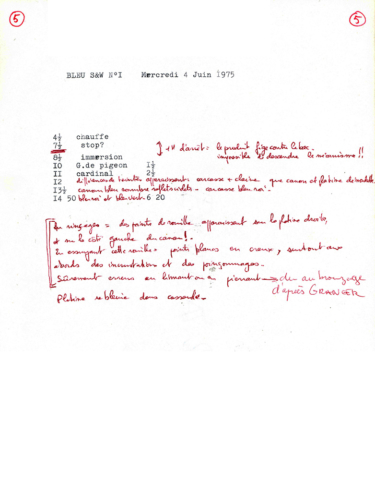 5 5
BLEU S&W N°I Mercredi 4 Juin 1975
4½ chauffe
7½ stop? 1H d'arrêt: le produit fige contre le bac.
8½ immersion impossible de descendre le mécanisme!!
IO G.de pigeon I½
II cardinal 2½
I2 différences de teintes apparaissent: carcasse + claire que canon et platine de
I3½ canon bleu sombre reflets violets - carcasse bleu roi.
I4 50 bleu roi et bleu vert. 6 20
Au rinçage = des points de rouille apparaissent sur la platine droite,
et sur le côté gauche du canon!.
En essuyant cette rouille = points blancs en creux, surtout aux
abords des incrustations et des poinçonnages.
Sûrement erreur en limant ou à pierrant → dû au bronzage
d'après GRANGER
Platine rebleuie dans casserole.